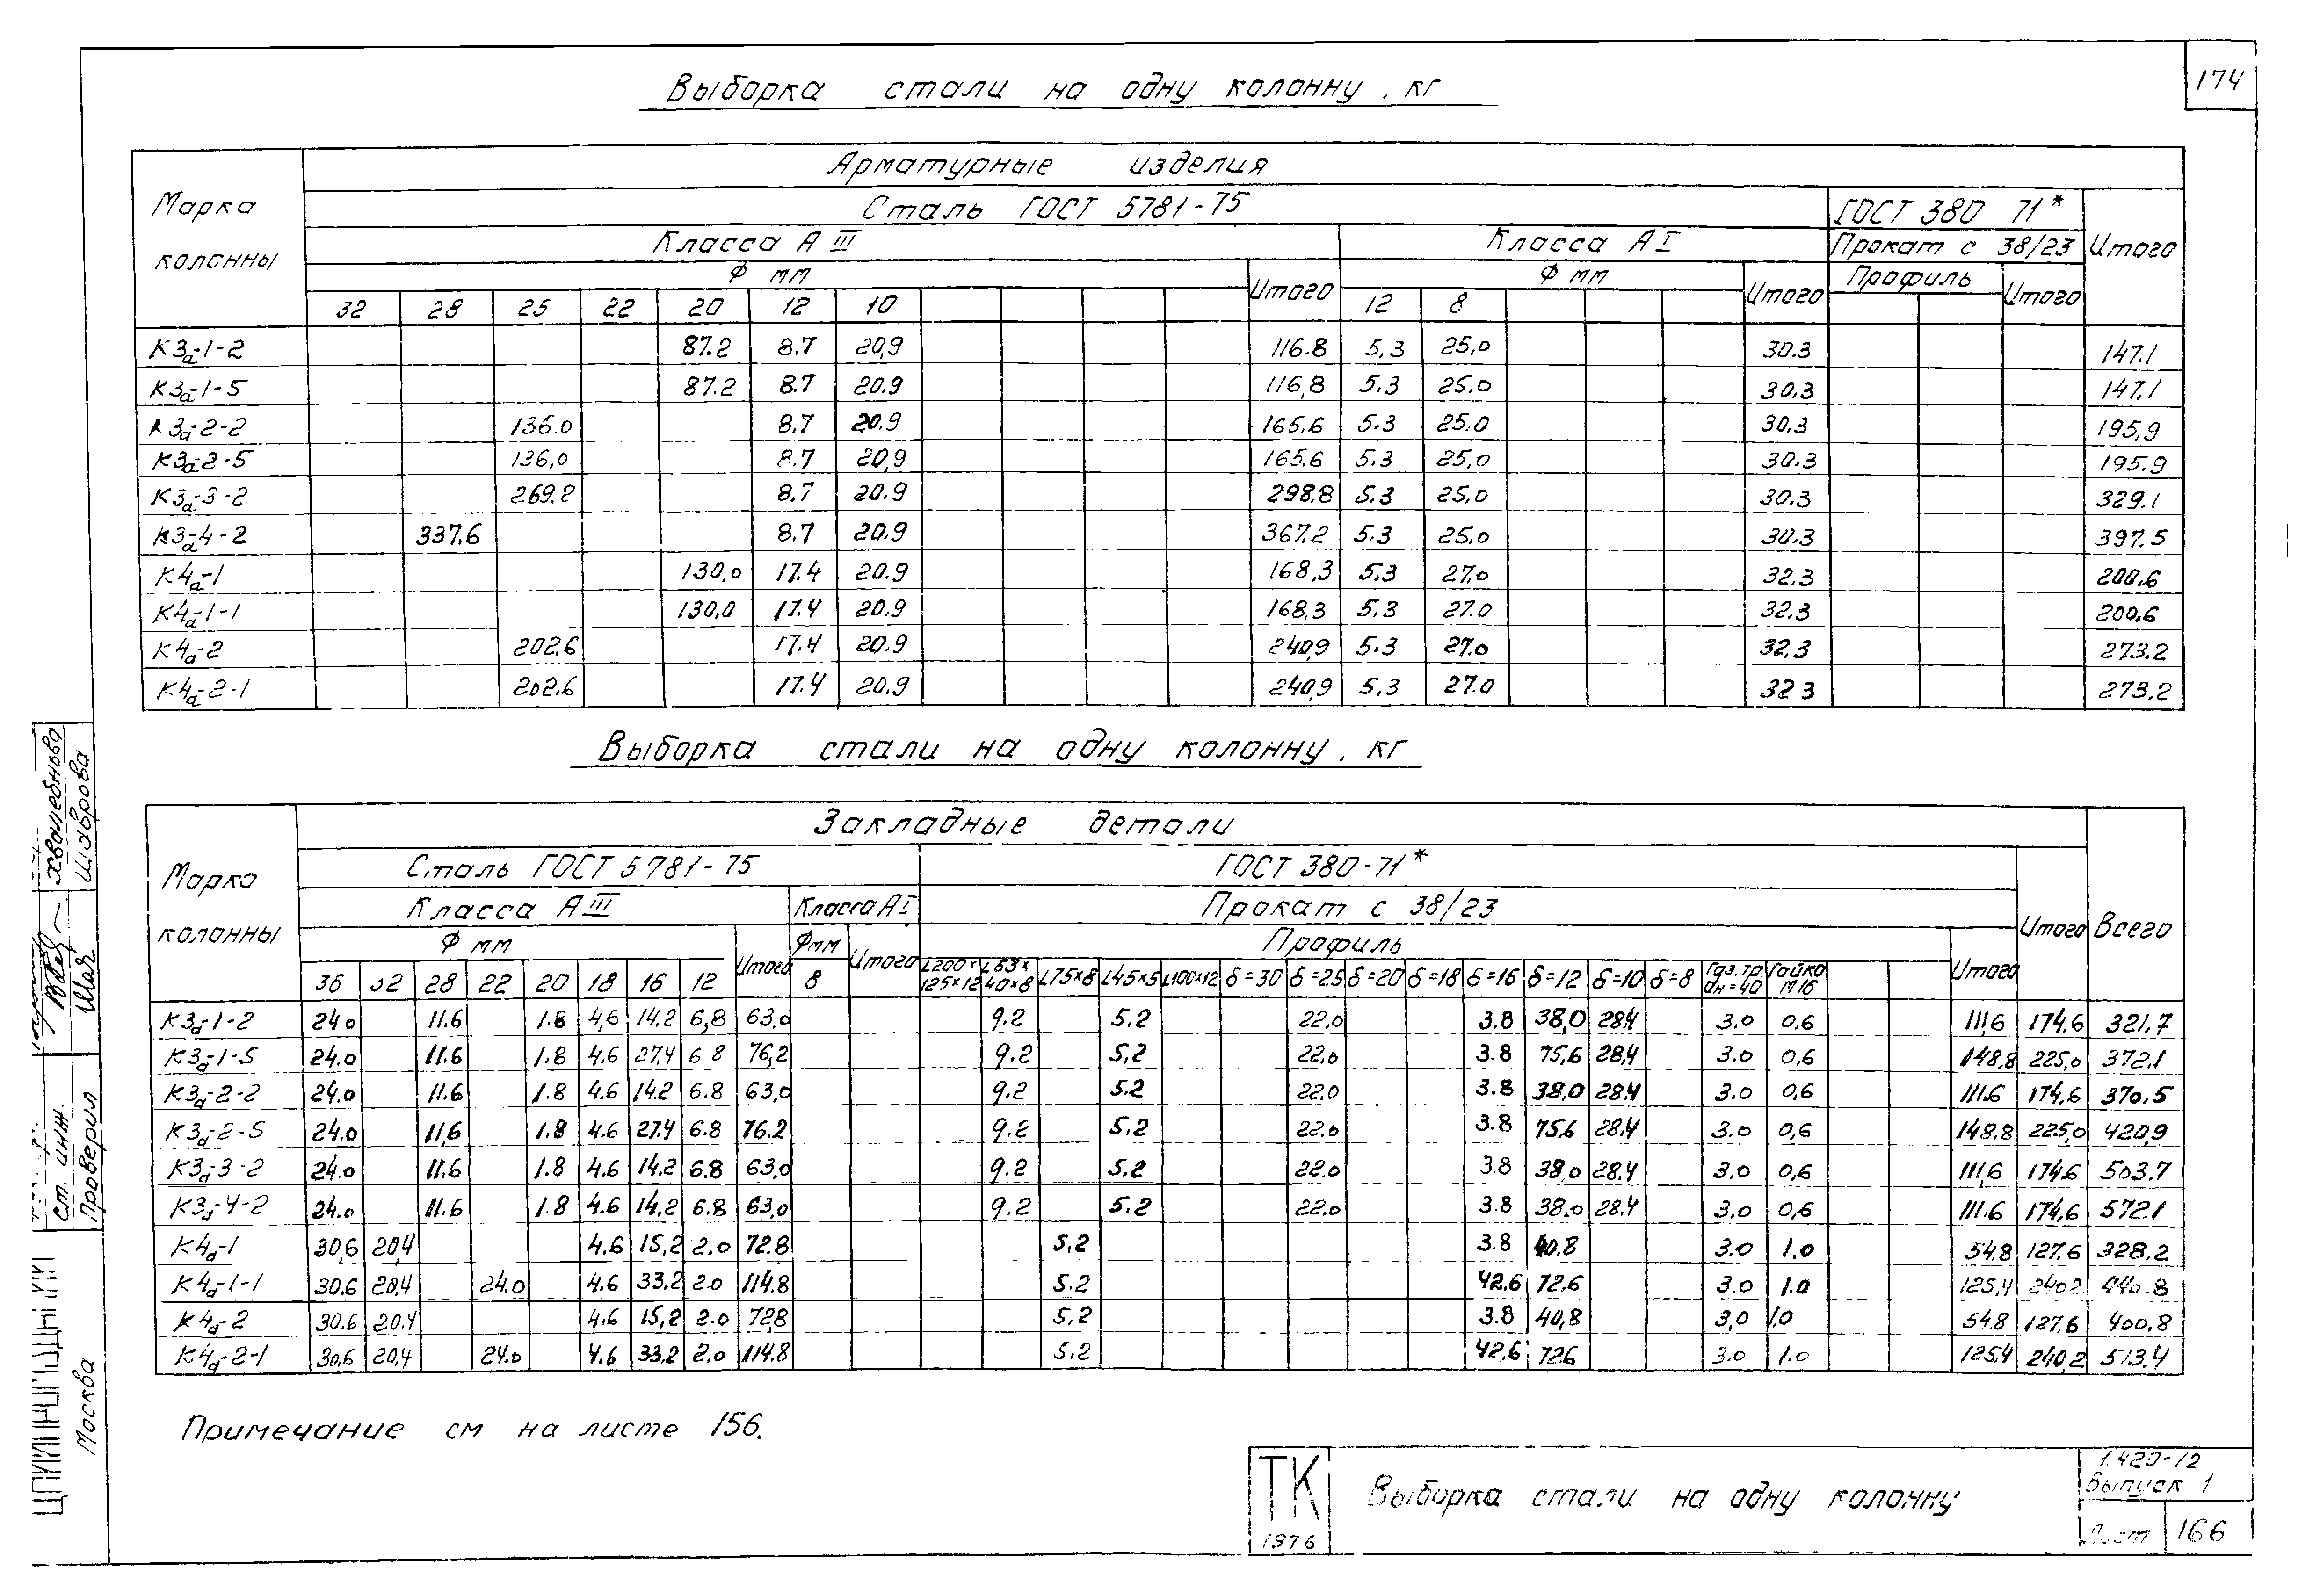 174
Выборка стали на одну колонну, кг
Марка колонны
Арматурные изделия
Сталь ГОСТ 5781-75 ГОСТ 380 71* Итого
Класса А III Класса А I Прокат с 38/23
Ф мм Итого Ф мм Итого Профиль Итого
32 28 25 22 20 12 10 12 8
К3а-1-2 87.2 8.7 20,9 116.8 5,3 25,0 30.3 147.1
К3а-1-5 87.2 8.7 20.9 116,8 5.3 25.0 30.3 147.1
К3а-2-2 136.0 8.7 20.9 165.6 5.3 25.0 30.3 195,9
К3а-2-5 136,0 8.7 20,9 165.6 5.3 25,0 30.3 195.9
К3а-3-2 269.2 8.7 20.9 298.8 5.3 25,0 30.3 329.1
К3а-4-2 337.6 8.7 20.9 367.2 5.3 25.0 30.3 397.5
К4а-1 130,0 17.4 20.9 168,3 5.3 27.0 32.3 200.6
К4а-1-1 130,0 17.4 20.9 168,3 5.3 27.0 32.3 200.6
К4а-2 202.6 17.4 20.9 240,9 5.3 27.0 32.3 273.2
К4а-2-1 202.6 17.4 20.9 240,9 5,3 27.0 32 3 273.2
Выборка стали на одну колонну, кг
Марка колонны
Закладные детали Всего
Сталь ГОСТ 5781-75 ГОСТ 380-71* Итого
Класса А III Класса А I Прокат с 38/23
Ф мм Итого Ф мм Итого Профиль Итого
36 32 28 22 20 18 16 12 8 L200×125×12 L63×40×8 L75×8 L45×5 L100×12 δ=30 δ=25 δ=20 δ=18 δ=16 δ=12 δ=10 δ=8 Газ.тр. dн=40 Гайка М16
К3а-1-2 24.0 11.6 1.8 4,6 14.2 6,8 63,0 9.2 5.2 22,0 3.8 38,0 28.4 3.0 0,6 111,6 174,6 321,7
К3а-1-5 24.0 11.6 1.8 4.6 27.4 6 8 76,2 9.2 5,2 22.0 3.8 75,6 28,4 3.0 0,6 148,8 225,0 372.1
К3а-2-2 24.0 11.6 1.8 4.6 14.2 6.8 63,0 9.2 5.2 22.0 3.8 38,0 28.4 3.0 0,6 111.6 174,6 370.5
К3а-2-5 24.0 11,6 1.8 4.6 27.4 6.8 76.2 9.2 5.2 22.0 3.8 75.6 28.4 3.0 0,6 148.8 225,0 420,9
К3а-3-2 24.0 11.6 1.8 4.6 14.2 6.8 63,0 9.2 5.2 22.0 3.8 38,0 28.4 3.0 0,6 111,6 174.6 503.7
К3а-4-2 24.0 11.6 1.8 4.6 14,2 6.8 63,0 9.2 5.2 22.0 3.8 38.0 28.4 3.0 0,6 111.6 174,6 572.1
К4а-1 30,6 20,4 4.6 15,2 2.0 72.8 5,2 3.8 40,8 3.0 1.0 54.8 127.6 328.2
К4а-1-1 30.6 20,4 24.0 4.6 33,2 2.0 114.8 5.2 42.6 72.6 3.0 1.0 125,4 240.2 440.8
К4а-2 30.6 20.4 4.6 15,2 2.0 72.8 5,2 3.8 40,8 3,0 1,0 54.8 127.6 400.8
К4а-2-1 30,6 20,4 24.0 4.6 33.2 2.0 114.8 5.2 42.6 72.6 3.0 1.0 125.4 240,2 513.4
Примечание см на листе 156.
ТК
1976
Выборка стали на одну колонну
1.420-12
Выпуск 1
Лист 166
Ст. инж.
Проверил
Шаврова
Москва